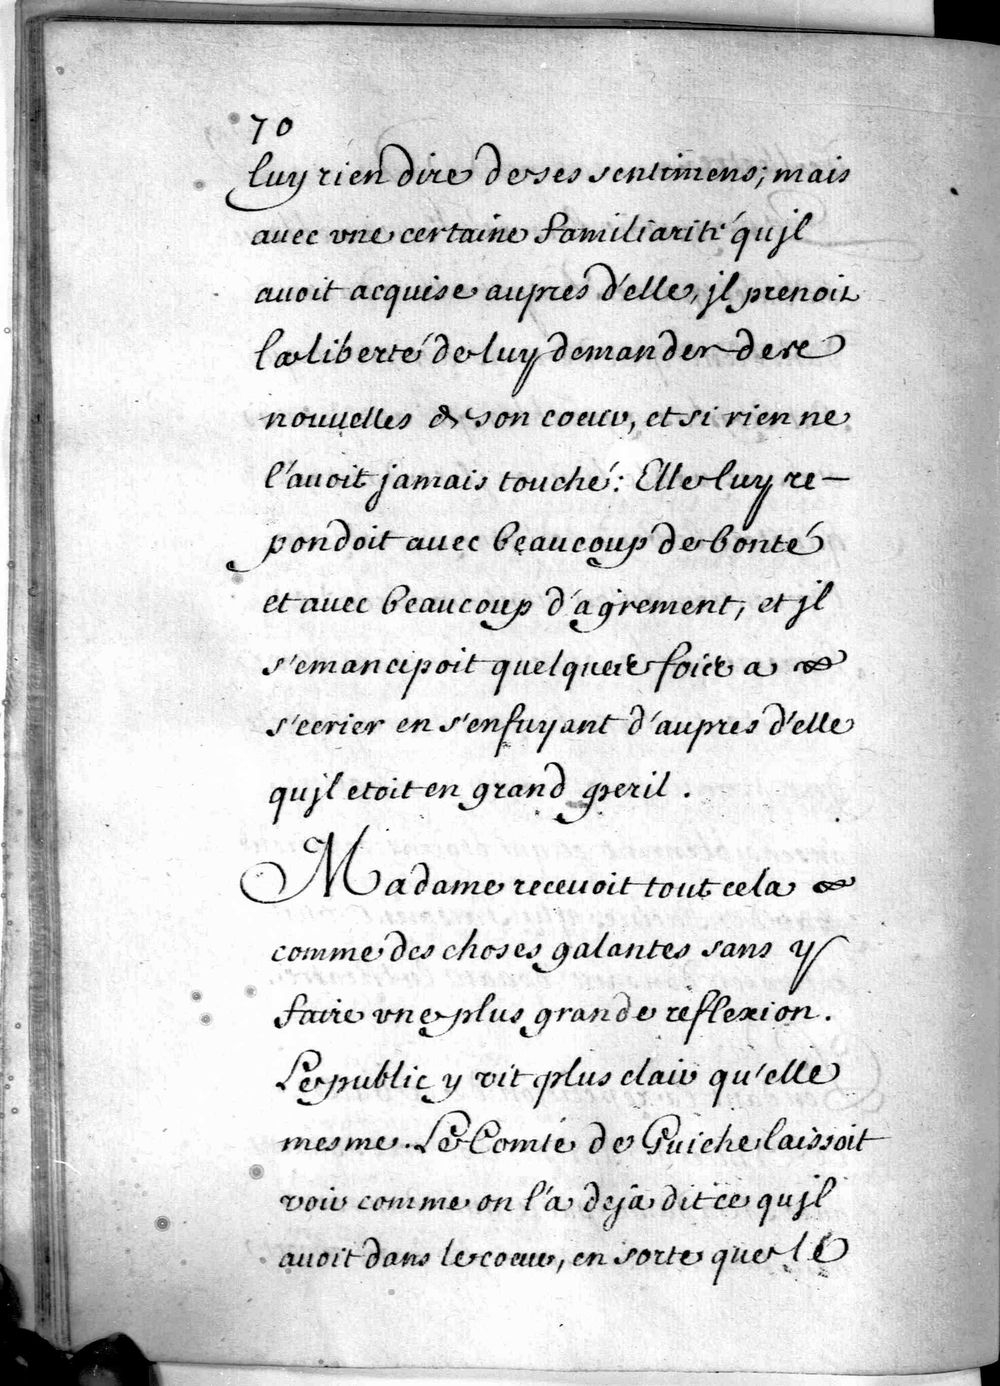 70
luy rien dire de ses sentimens; mais
avec vne certaine familiarité qu'jl
avoit acquise aupres d'elle, jl prenoit
la liberté de luy demander de se
nouuelles de son coeur, et si rien ne
l'avoit jamais touché: Elle luy re-
pondoit avec beaucoup de bonté
et avec beaucoup d'agrement, et jl
s'emancipoit quelques fois a
s'ecrier en s'enfuyant d'aupres d'elle
qu'jl etoit en grand peril.
Madame recevoit tout cela
comme des choses galantes sans y
faire vne plus grande reflexion.
Le public y vit plus clair qu'elle
mesme. Le Comte de Guiche laissoit
voir comme on l'a deja dit ce qu'jl
avoit dans le coeur, en sorte que le